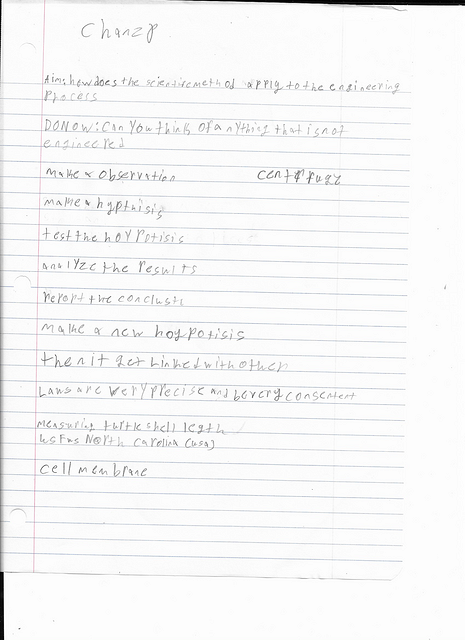 Aim: how does the scientiremethod apply to the engineering
process
DO NOW: Can You think of anything that is not
engineered
make a observation centrfuge
make a hypthisis
test the hoypotisis
analyze the results
report the conclusti
make a new hoypotisis
then it get linked with other
Laws are very precise and be very consentent
measuring turtle shell legth
usFws North Carolina (usa)
cell membrane